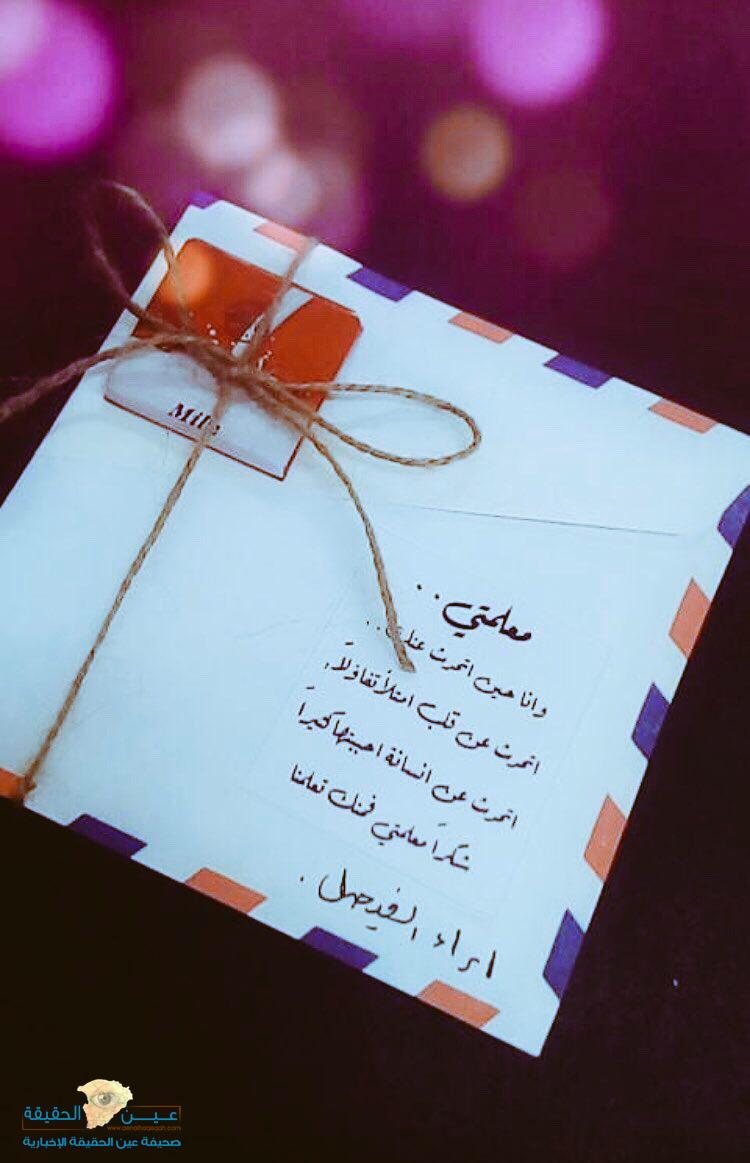 Milk
معلمتي . .
وانا حين اتحدث عنك . .
اتحدث عن قلب امتلأ تفاؤلاً ,
اتحدث عن انسانة احببتها كثيراً
شكراً معلمتي فمنك تعلمنا
الفيصل .
عين الحقيقة
صحيفة عين الحقيقة الإخبارية